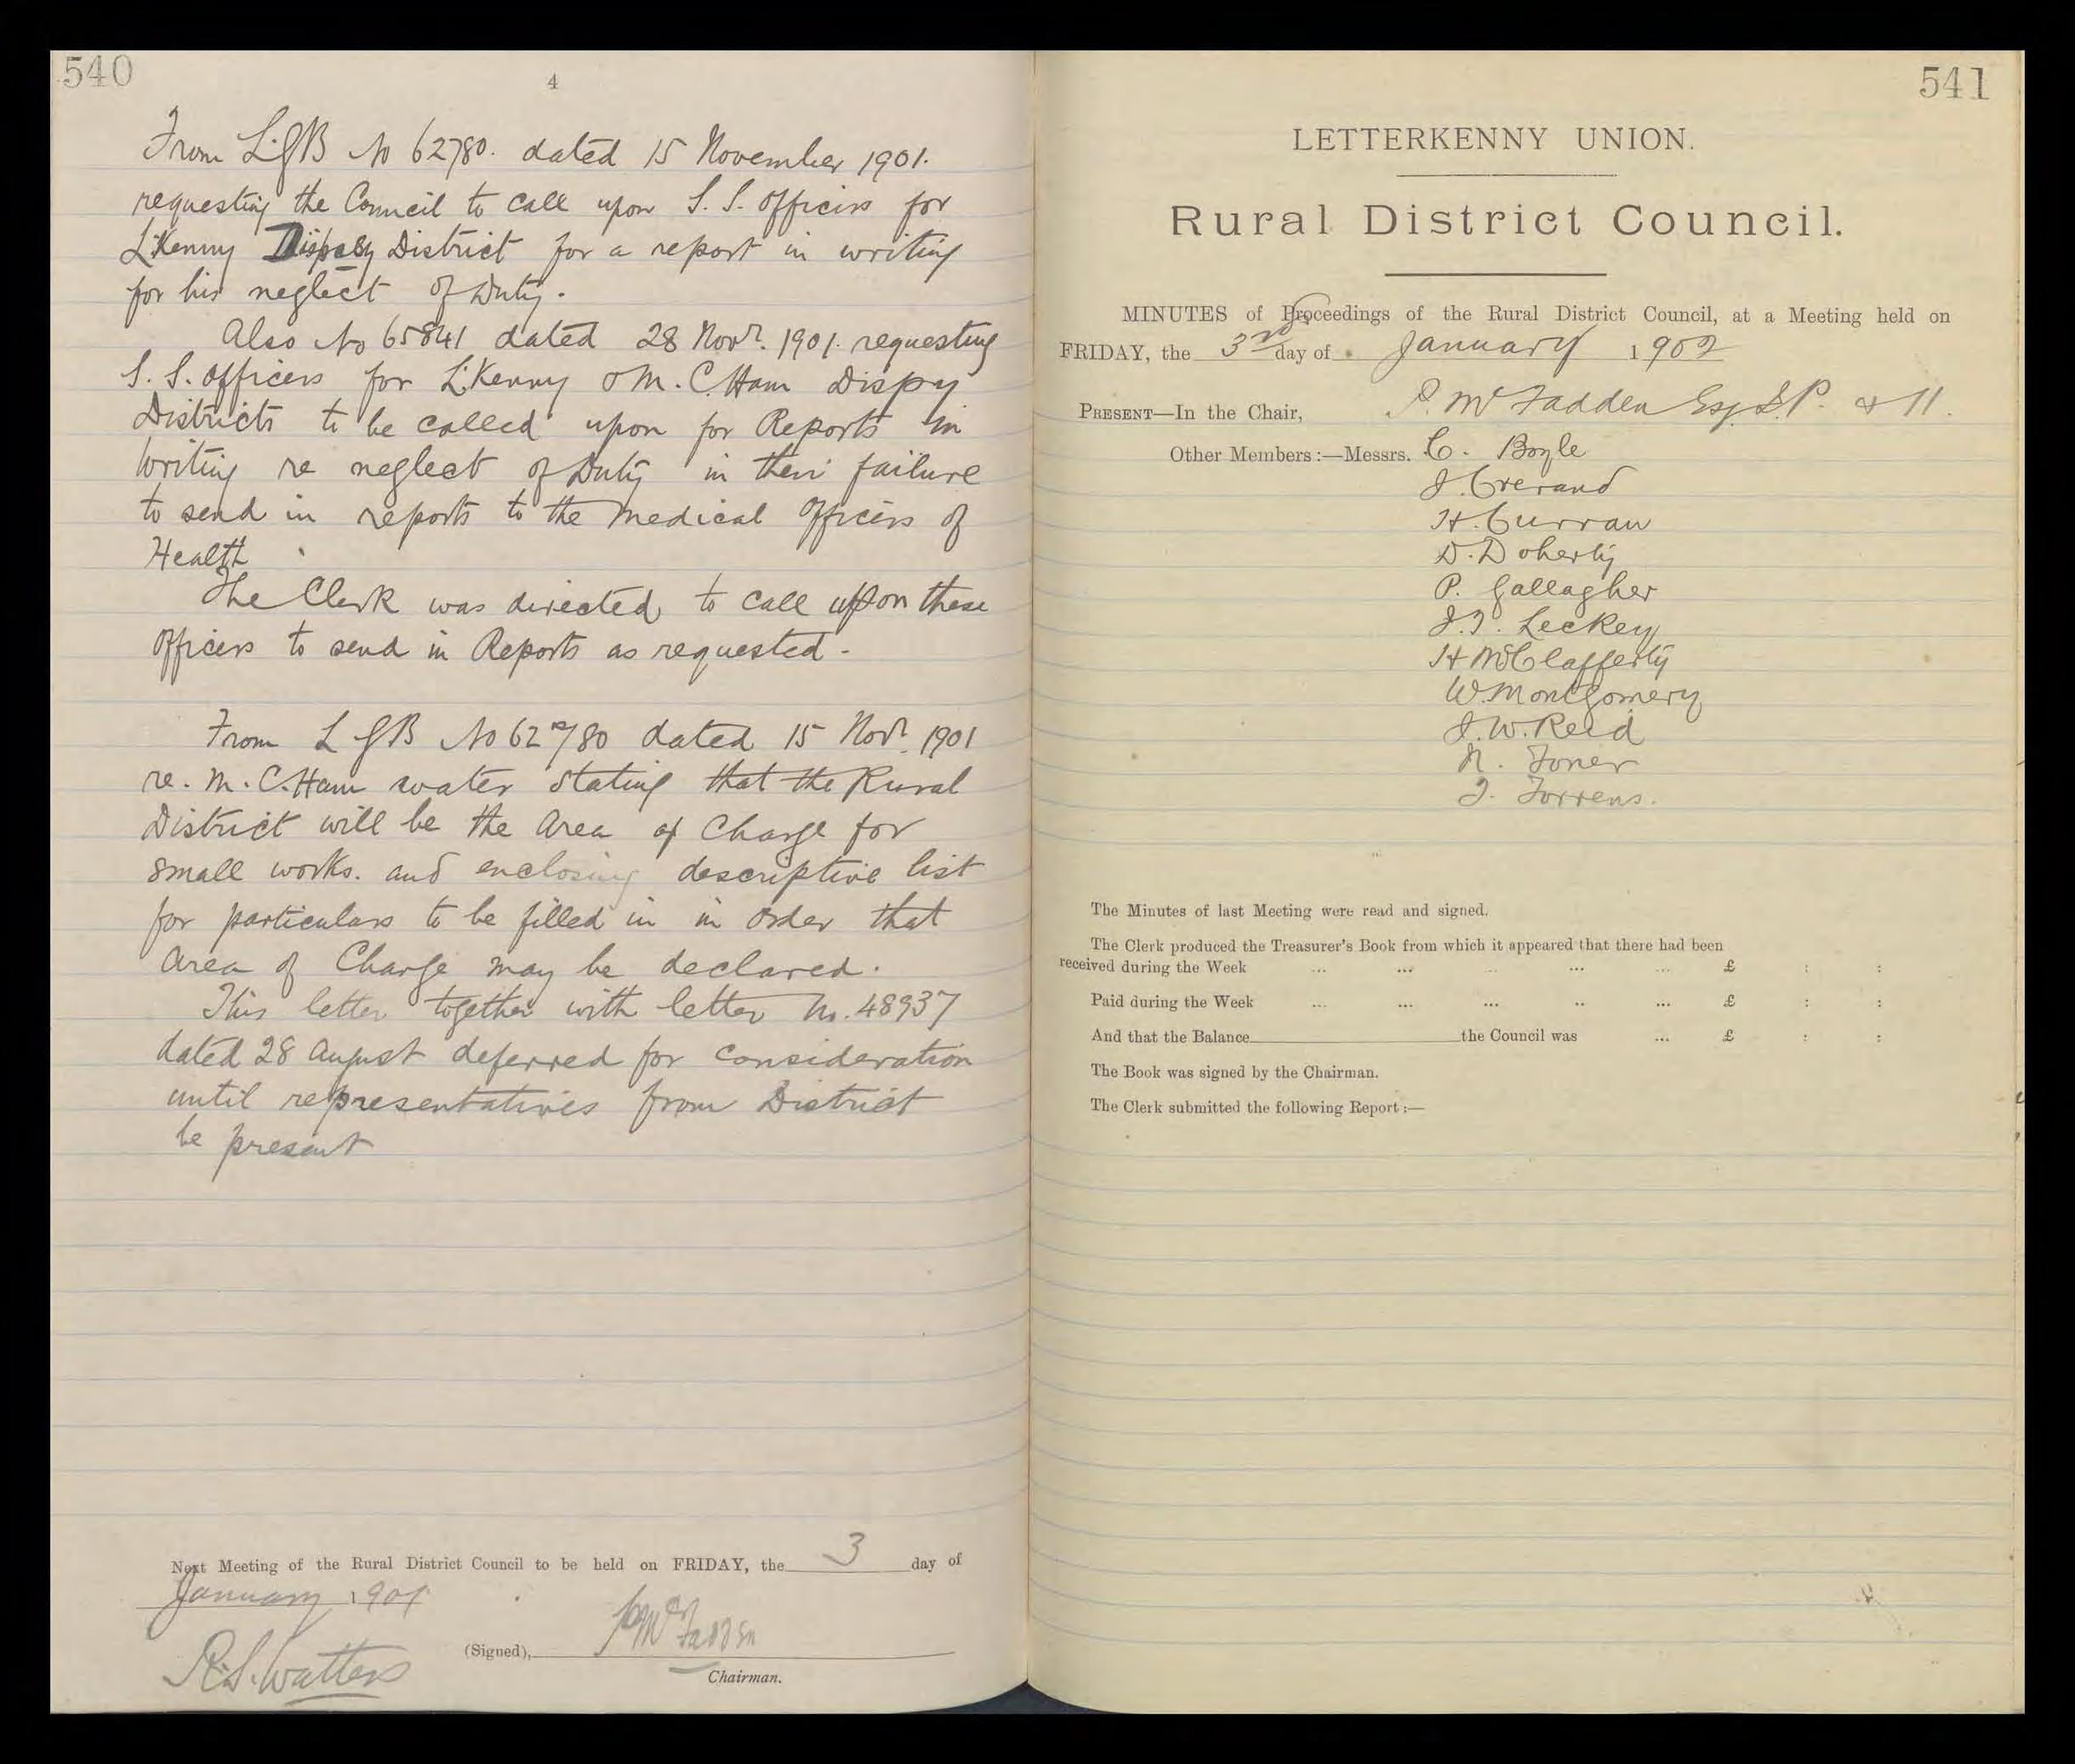 540
4
From L.G.B No 62780. dated 15 November 1901.
requesting the Council to call upon S. S. Officers for
L'Kenny Dispsy District for a report in writing
for his neglect of Duty.
Also No 65841 dated 28 Novr. 1901. requesting
S. S. Officers for L'Kenny & M. C.Ham Dispy
Districts to be called upon for Reports in
writing re neglect of Duty in their failure
to send in reports to the Medical Officers of
Health.
The Clerk was directed to call upon these
Officers to send in Reports as requested.
From L G B No 62780 dated 15 Novr. 1901
re. M. C.Ham water stating that the Rural
District will be the Area of Charge for
small works. and enclosing descriptive list
for particulars to be filled in in order that
Area of Charge may be declared.
This letter together with letter No. 48937
dated 28 August deferred for consideration
until representatives from District
be present
Next Meeting of the Rural District Council to be held on FRIDAY, the 3 day of
January 1901
(Signed), P McFadden
R.S. Watters
Chairman.
541
LETTERKENNY UNION.
Rural District Council.
MINUTES of Proceedings of the Rural District Council, at a Meeting held on
FRIDAY, the 3rd day of January 1902
PRESENT—In the Chair, P. McFadden Esq. J.P. & 11.
Other Members:—Messrs. C. Boyle
J. Crerand
H. Curran
D. Doherty
P. Gallagher
J. J. Leckey
H McClafferty
W. Montgomery
J. W. Reid
N. Toner
J. Torrens.
The Minutes of last Meeting were read and signed.
The Clerk produced the Treasurer's Book from which it appeared that there had been
received during the Week ... ... ... ... ... £ : :
Paid during the Week ... ... ... .. ... £ : :
And that the Balance the Council was ... £ : :
The Book was signed by the Chairman.
The Clerk submitted the following Report:—